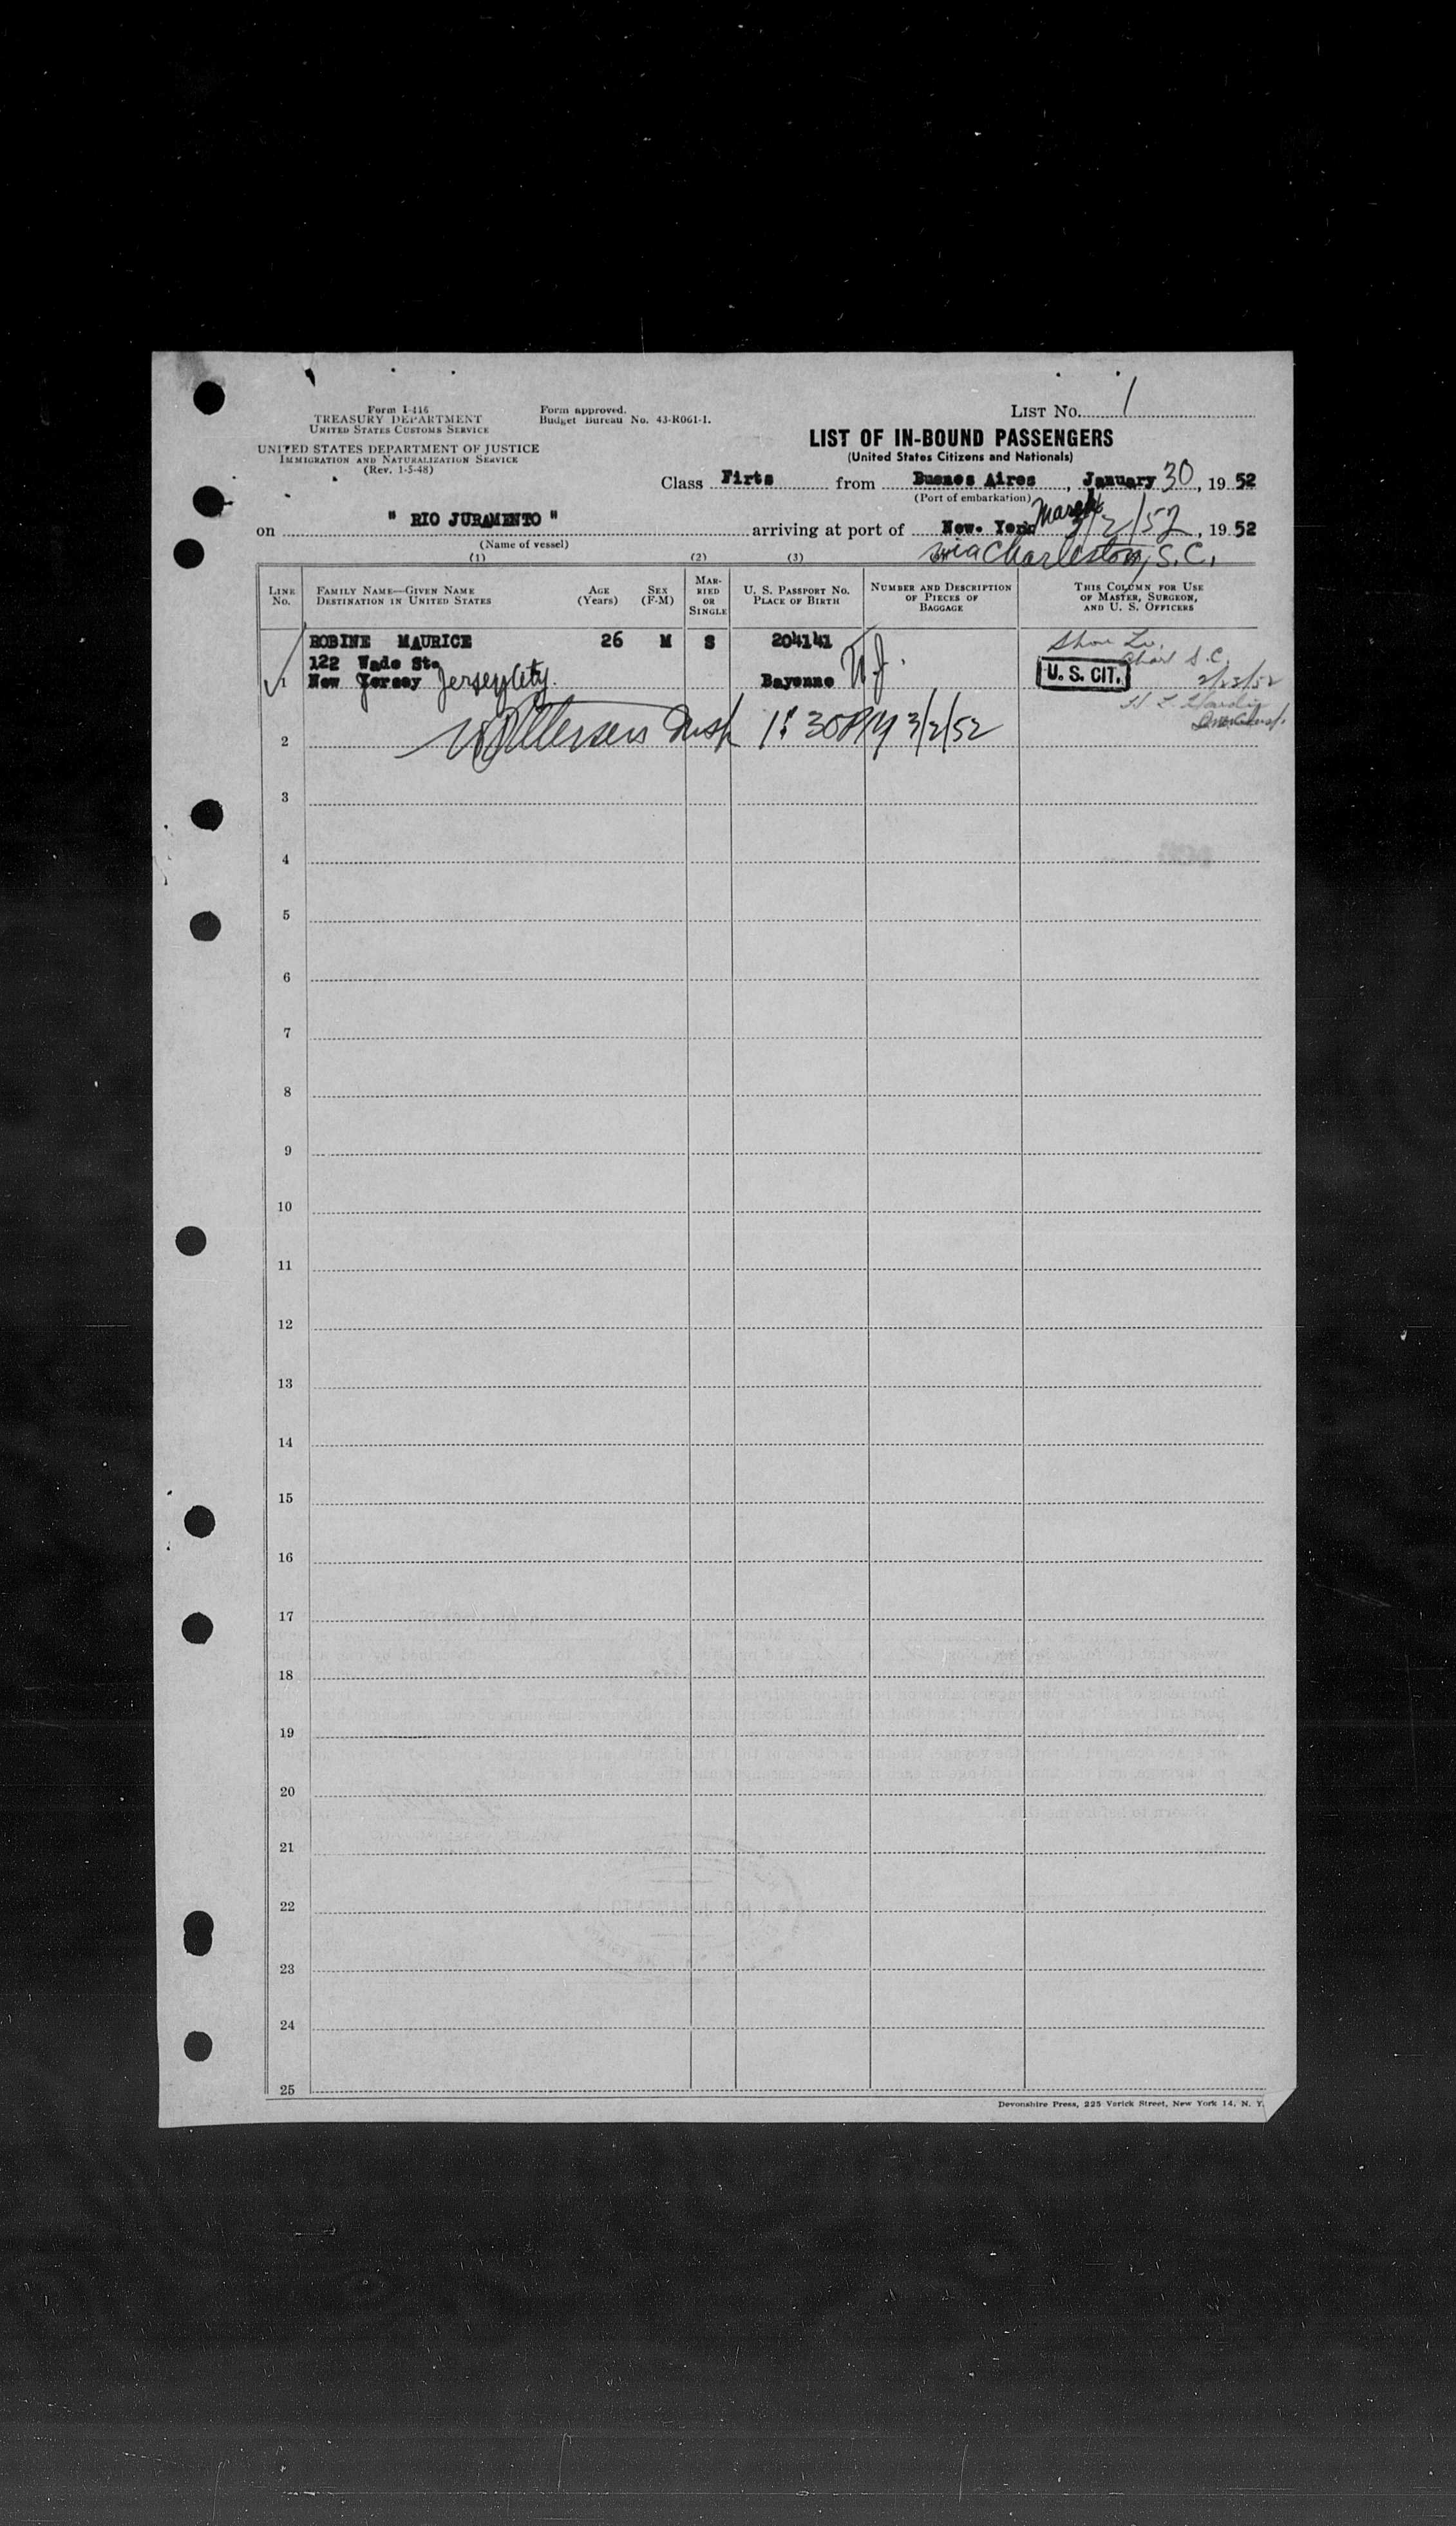 Form I-416
TREASURY DEPARTMENT
UNITED STATES CUSTOMS SERVICE
UNITED STATES DEPARTMENT OF JUSTICE
IMMIGRATION AND NATURALIZATION SERVICE
(Rev. 1-5-48)
Form approved.
Budget Bureau No. 43-R061-1.
LIST NO. 1
LIST OF IN-BOUND PASSENGERS
(United States Citizens and Nationals)
Class Firts from Buenos Aires, January 30, 19 52
(Port of embarkation)
on " RIO JURAMENTO " arriving at port of New. York March 3/2/52, 19 52
(Name of vessel)
via Charleston, S.C.
(1) (2) (3)
LINE No. FAMILY NAME—GIVEN NAME DESTINATION IN UNITED STATES AGE (Years) SEX (F-M) MARRIED OR SINGLE U. S. PASSPORT NO. PLACE OF BIRTH NUMBER AND DESCRIPTION OF PIECES OF BAGGAGE THIS COLUMN FOR USE OF MASTER, SURGEON, AND U. S. OFFICERS
ROBINE MAURICE 26 M S 204141 Shore Lv.
122 Wade St. Char S.C.
1 New Jersey Jersey City. Bayonne N.J. U. S. CIT. 2/23/52
Insp 1:30PM 3/2/52
2
3
4
5
6
7
8
9
10
11
12
13
14
15
16
17
18
19
20
21
22
23
24
25
Devonshire Press, 225 Varick Street, New York 14, N. Y.